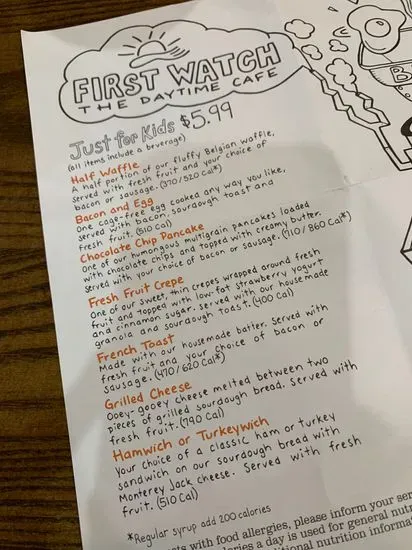 FIRST WATCH
THE DAYTIME CAFE
Just for Kids $5.99
(all items include a beverage)
Half Waffle
A half portion of our fluffy Belgian waffle,
served with fresh fruit and your choice of
bacon or sausage. (370/520 Cal*)
Bacon and Egg
One cage-free egg cooked any way you like,
served with bacon, sourdough toast and
fresh fruit. (510 Cal)
Chocolate Chip Pancake
One of our humongous multigrain pancakes loaded
with chocolate chips and topped with creamy butter.
Served with your choice of bacon or sausage. (710/860 Cal*)
Fresh Fruit Crepe
One of our sweet, thin crepes wrapped around fresh
fruit and topped with low-fat strawberry yogurt
and cinnamon sugar. Served with our housemade
granola and sourdough toast. (400 Cal)
French Toast
Made with our housemade batter. Served with
fresh fruit and your choice of bacon or
sausage. (470/620 Cal*)
Grilled Cheese
Ooey-gooey cheese melted between two
pieces of grilled sourdough bread. Served with
fresh fruit. (790 Cal)
Hamwich or Turkeywich
Your choice of a classic ham or turkey
sandwich on our sourdough bread with
Monterey Jack cheese. Served with fresh
fruit. (510 Cal)
*Regular syrup add 200 calories
with food allergies, please inform your
calories a day is used for general
nutrition